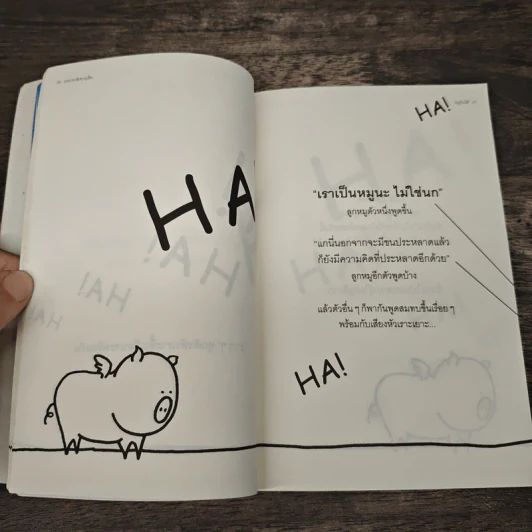 HA!
HA!
"เราเป็นหมูนะ ไม่ใช่นก"
ลูกหมูตัวหนึ่งพูดขึ้น
"แกนี่นอกจากจะมีขนประหลาดแล้ว
ก็ยังมีความคิดที่ประหลาดอีกด้วย"
ลูกหมูอีกตัวพูดบ้าง
แล้วตัวอื่น ๆ ก็พากันพูดสมทบขึ้นเรื่อย ๆ
พร้อมกับเสียงหัวเราะเยาะ...
HA!